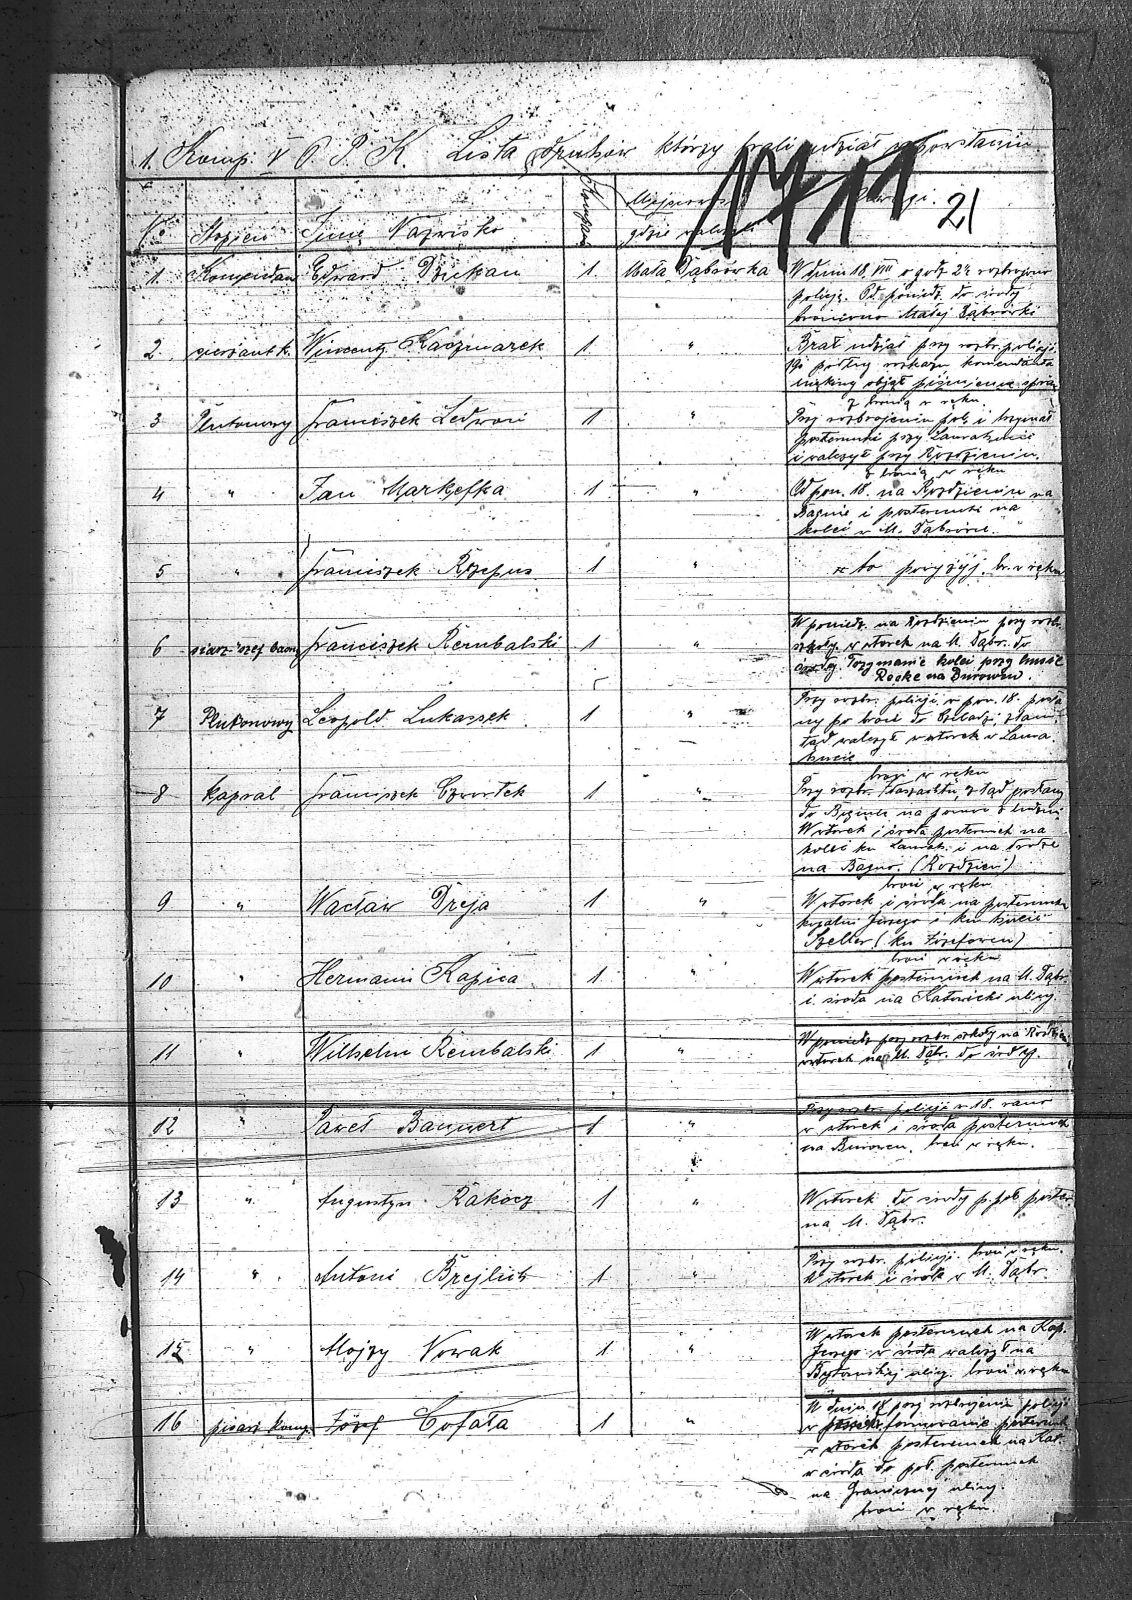 1. Komp. V P. P. K. Lista druhów którzy brali udział w powstaniu
1711
21
No Stopień Imię Nazwisko Kompan Miejscowość gdzie walczył
1. Komendan Edward Dzickau 1 Mała Dąbrówka W dniu 18 VIII o godz 2½ rozbrojono
policję. Od poniedz. do środy
broniono Małej Dąbrówki
2. sierżant k. Wincenty Kaczmarek 1 " Brał udział przy rozbr. policji
podług rozkazu komendanta
objął
z bronią w ręku.
3 Plutonowy Franciszek Ledwoń 1 " Przy rozbrojeniu pol. i trzymał
posterunki przy Laurahucie
i walczył przy Rozdzieniu.
z bronią w ręku
4 " Jan Markefka 1 " Od pon. 18. na Rozdzieniu na
Bagnie i posterunki na
kolei w M. Dąbrówce.
5 " Franciszek Rzepus 1 " to powyżej. br. w ręku
6 Franciszek Rembalski 1 " W poniedz. na Rozdzieniu przy rozb.
szkoły w wtorek na M. Dąbr. do
środy. Trzymanie kolei przy hucie
na Burowcu.
7 Plutonowy Leopold Lukaszek 1 " Przy rozbr. policji w pon. 18.
ny po broń do Czeladzi,
tąd walczył w wtorek w Laura
hucie
broń w ręku
8 kapral Franciszek Czwortek 1 " Przy rozbr. z tąd posłany
do na pomoc z ludźmi
Wtorek i środa posterunek na
kolei ku Laurah. i na
na Bagno. (Rozdzień)
broń w ręku
9 " Wacław Dreja 1 " Wtorek i środa na posterunku
kopalni Jerzego i ku hucie
Szeller (ku Józefowcu)
broń w ręku
10 " Hermann Kapica 1 " Wtorek posterunek na M. Dąbr.
i środa na Katowicki ulicy.
11 " Wilhelm Rembalski 1 " W poniedz. przy rozbr. szkoły na Rozdzie
wtorek na M. Dąbr. do środy.
12 " Paweł Bannert 1 " Przy rozbr. policji w 18. rano
w wtorek i środa posterunek
na Burowcu. broń w ręku.
13 " Augustyn Rakocz 1 " Wtorek do środy p. poł.
na M. Dąbr.
14 " Antoni Brejlich 1 " Przy rozbr. policji. broń w ręku.
W wtorek i środa w M. Dąbr.
15 " Alojzy Nowak 1 " W wtorek posterunek na Kop.
Jerzego w środa walczył na
Bytomskiej ulicy. broń w ręku
16 pisarz komp. Józef Cofała 1 " W dniu 18 przy rozbrojeniu policji
w formowanie posterunk
w wtorek posterunek na Kat.
w środa do poł. posterunek
na Granicznej ulicy.
broń w ręku.